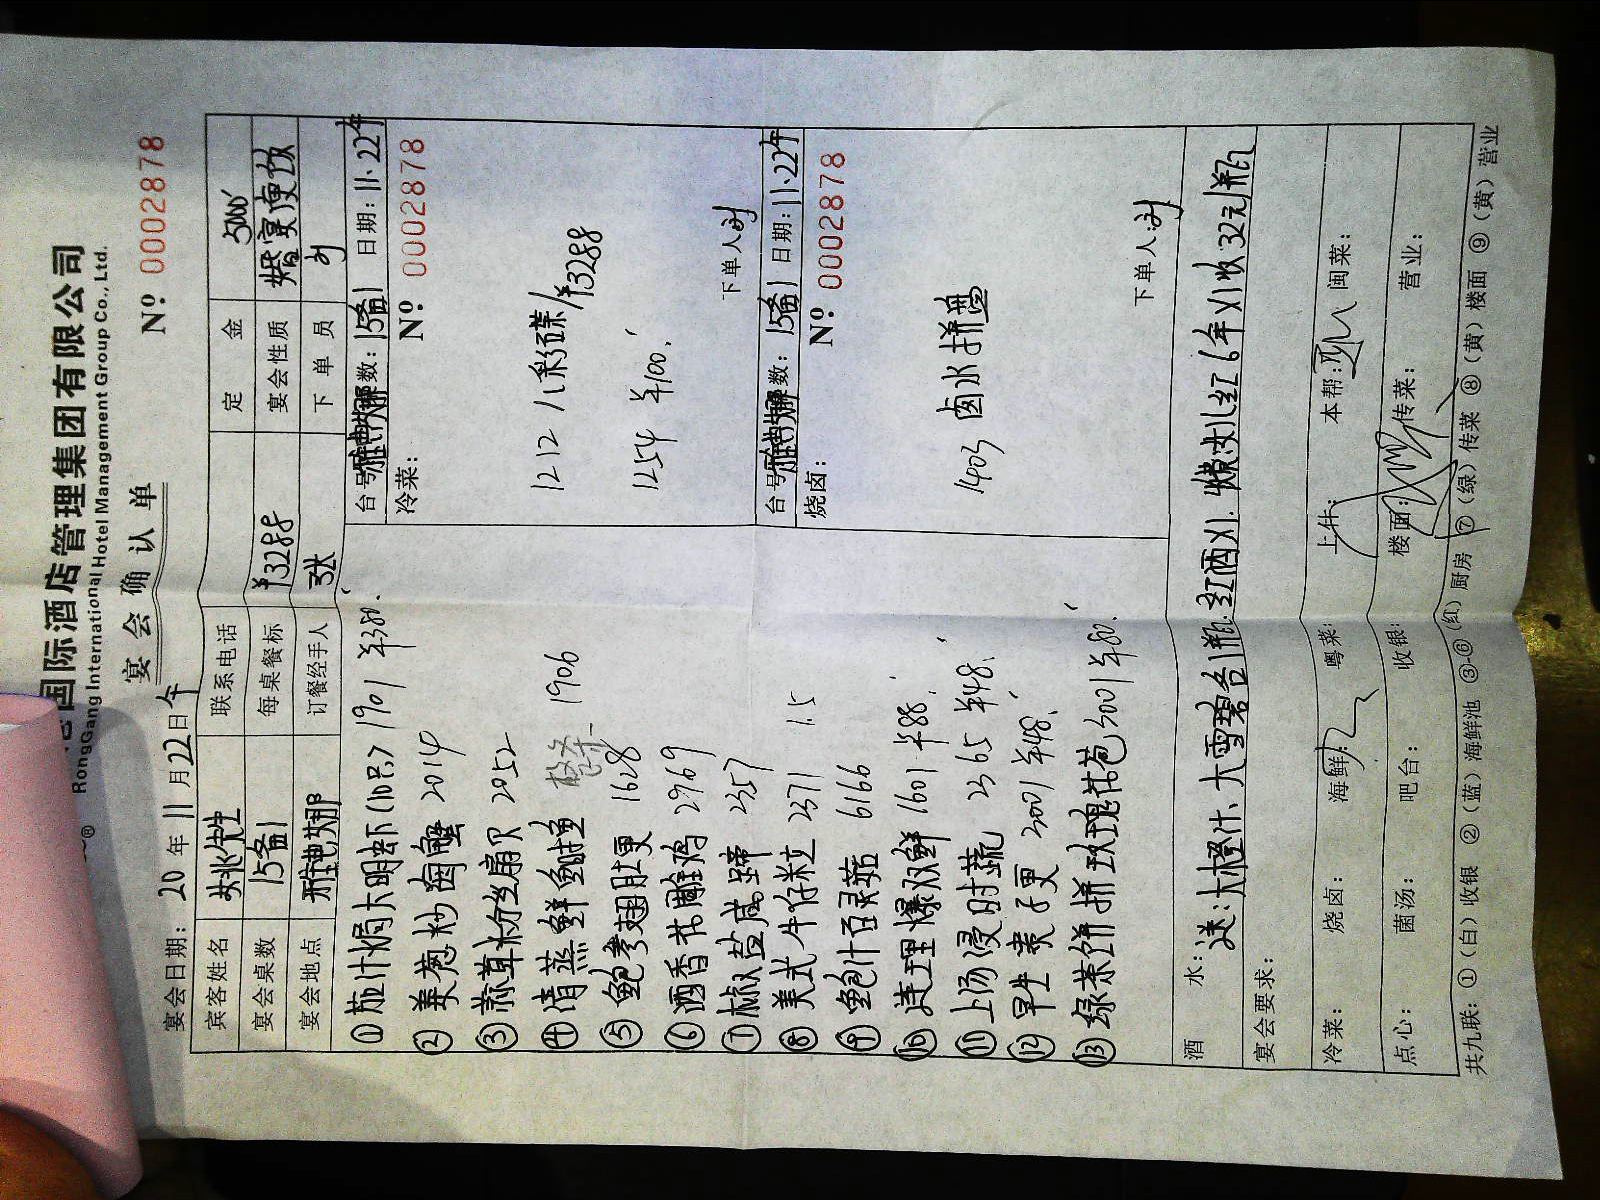 国际酒店管理集团有限公司
RongGang International Hotel Management Group Co., Ltd.
宴会确认单
宴会日期: 20 年 11 月 22 日 午 Nº 0002878
宾客姓名 先生 联系电话 定金 5000
宴会桌数 15备1 每桌餐标 ¥3288 宴会性质 婚宴便饭
宴会地点 雅典娜 订餐经手人 下单员
台号: 雅典娜 数: 15备1 日期: 11.22午
冷菜: Nº 0002878
1212 八彩碟/¥3288
1254 ¥100
下单人:
台号: 雅典娜 数: 15备1 日期: 11.22午
烧卤: Nº 0002878
1403 卤水拼盘
下单人:
① 茄汁焗大明虾(10只) 1901 ¥380
② 姜葱炒肉蟹 2014
③ 蒜茸粉丝扇贝 2052
④ 清蒸鲜鲥鱼 整 1906
⑤ 鲍参翅肚羹 1628
⑥ 酒香花雕鸡 2969
⑦ 椒盐咸蹄 2357
⑧ 美式牛仔粒 2371 15
⑨ 鲍汁百灵菇 6166
⑩ 连理爆双鲜 1601 ¥88
⑪ 上汤浸时蔬 2365 ¥48
⑫ 早生贵子羹 3001 ¥48
⑬ 绿茶饼拼玫瑰花苞 3001 ¥80
酒水: 送: 大橙汁、大雪碧各1瓶 红酒 女儿红6年 收32元/瓶
宴会要求:
冷菜: 烧卤: 海鲜: 粤菜: 上件: 本帮: 闽菜:
点心: 菌汤: 吧台: 收银: 楼面: 传菜: 营业:
共九联: ①(白)收银 ②(蓝)海鲜池 ③-⑥(红)厨房 ⑦(绿)传菜 ⑧(黄)楼面 ⑨(黄)营业